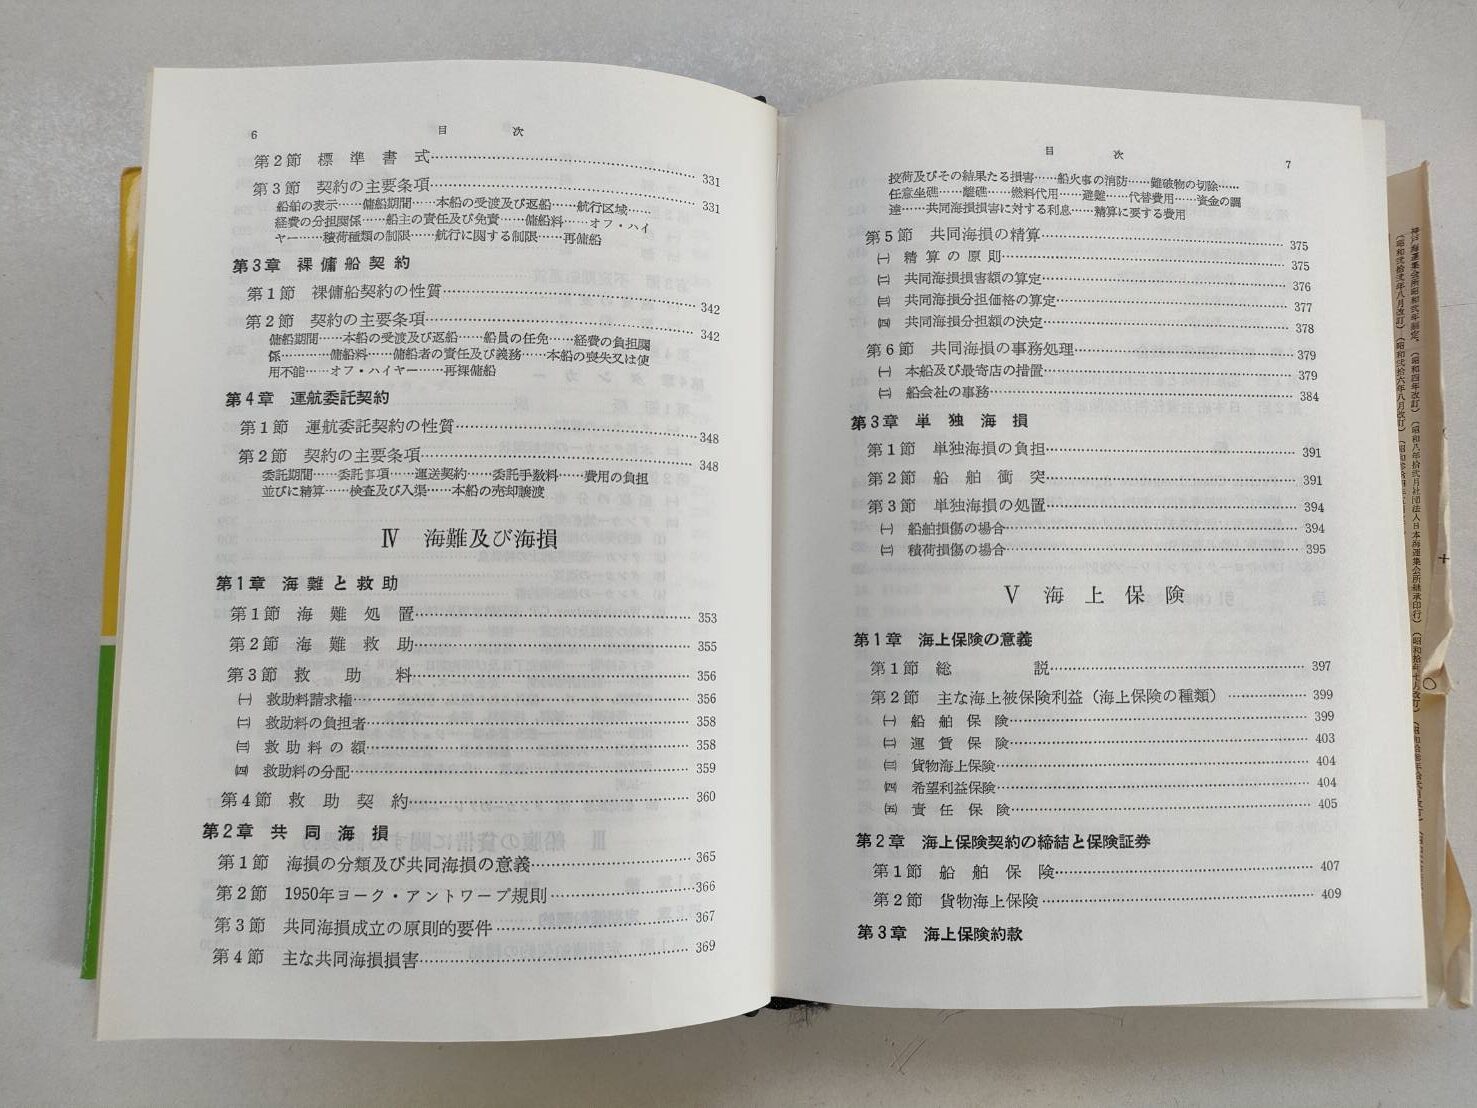 6
目 次
第2節 標準書式……331
第3節 契約の主要条項……331
船舶の表示……傭船期間……本船の受渡及び返船……航行区域……
経費の分担関係……船主の責任及び免責……傭船料……オフ・ハイ
ヤー……積荷種類の制限……航行に関する制限……再傭船
第3章 裸傭船契約
第1節 裸傭船契約の性質……342
第2節 契約の主要条項……342
傭船期間……本船の受渡及び返船……船員の任免……経費の負担関
係…………傭船料……傭船者の責任及び義務……本船の喪失又は使
用不能……オフ・ハイヤー……再裸傭船
第4章 運航委託契約
第1節 運航委託契約の性質……348
第2節 契約の主要条項……348
委託期間……委託事項……運送契約……委託手数料……費用の負担
並びに精算……検査及び入渠……本船の売却譲渡
Ⅳ 海難及び海損
第1章 海難と救助
第1節 海難処置……353
第2節 海難救助……355
第3節 救助料……356
㈠ 救助料請求権……356
㈡ 救助料の負担者……358
㈢ 救助料の額……358
㈣ 救助料の分配……359
第4節 救助契約……360
第2章 共同海損
第1節 海損の分類及び共同海損の意義……365
第2節 1950年ヨーク・アントワープ規則……366
第3節 共同海損成立の原則的要件……367
第4節 主な共同海損損害……369
目 次
7
投荷及びその結果たる損害……船火事の消防……難破物の切除……
任意坐礁……離礁……燃料代用……避難……代替費用……資金の調
達……共同海損損害に対する利息……精算に要する費用
第5節 共同海損の精算……375
㈠ 精算の原則……375
㈡ 共同海損損害額の算定……376
㈢ 共同海損分担価格の算定……377
㈣ 共同海損分担額の決定……378
第6節 共同海損の事務処理……379
㈠ 本船及び最寄店の措置……379
㈡ 船会社の事務……384
第3章 単独海損
第1節 単独海損の負担……391
第2節 船舶衝突……391
第3節 単独海損の処置……394
㈠ 船舶損傷の場合……394
㈡ 積荷損傷の場合……395
Ⅴ 海上保険
第1章 海上保険の意義
第1節 総説……397
第2節 主な海上被保険利益（海上保険の種類）……399
㈠ 船舶保険……399
㈡ 運賃保険……403
㈢ 貨物海上保険……404
㈣ 希望利益保険……404
㈤ 責任保険……405
第2章 海上保険契約の締結と保険証券
第1節 船舶保険……407
第2節 貨物海上保険……409
第3章 海上保険約款